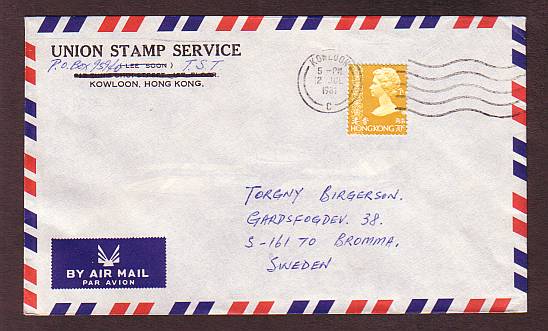 UNION STAMP SERVICE
P.O. Box ( LEE SOON ) T.S.T
KOWLOON, HONG KONG.
KOWLOON
5 - PM
12 JUL
C
香港
HONG KONG
TORGNY BIRGERSON.
GARDSFOGDEV. 38.
S-161 70 BROMMA.
SWEDEN
BY AIR MAIL
PAR AVION